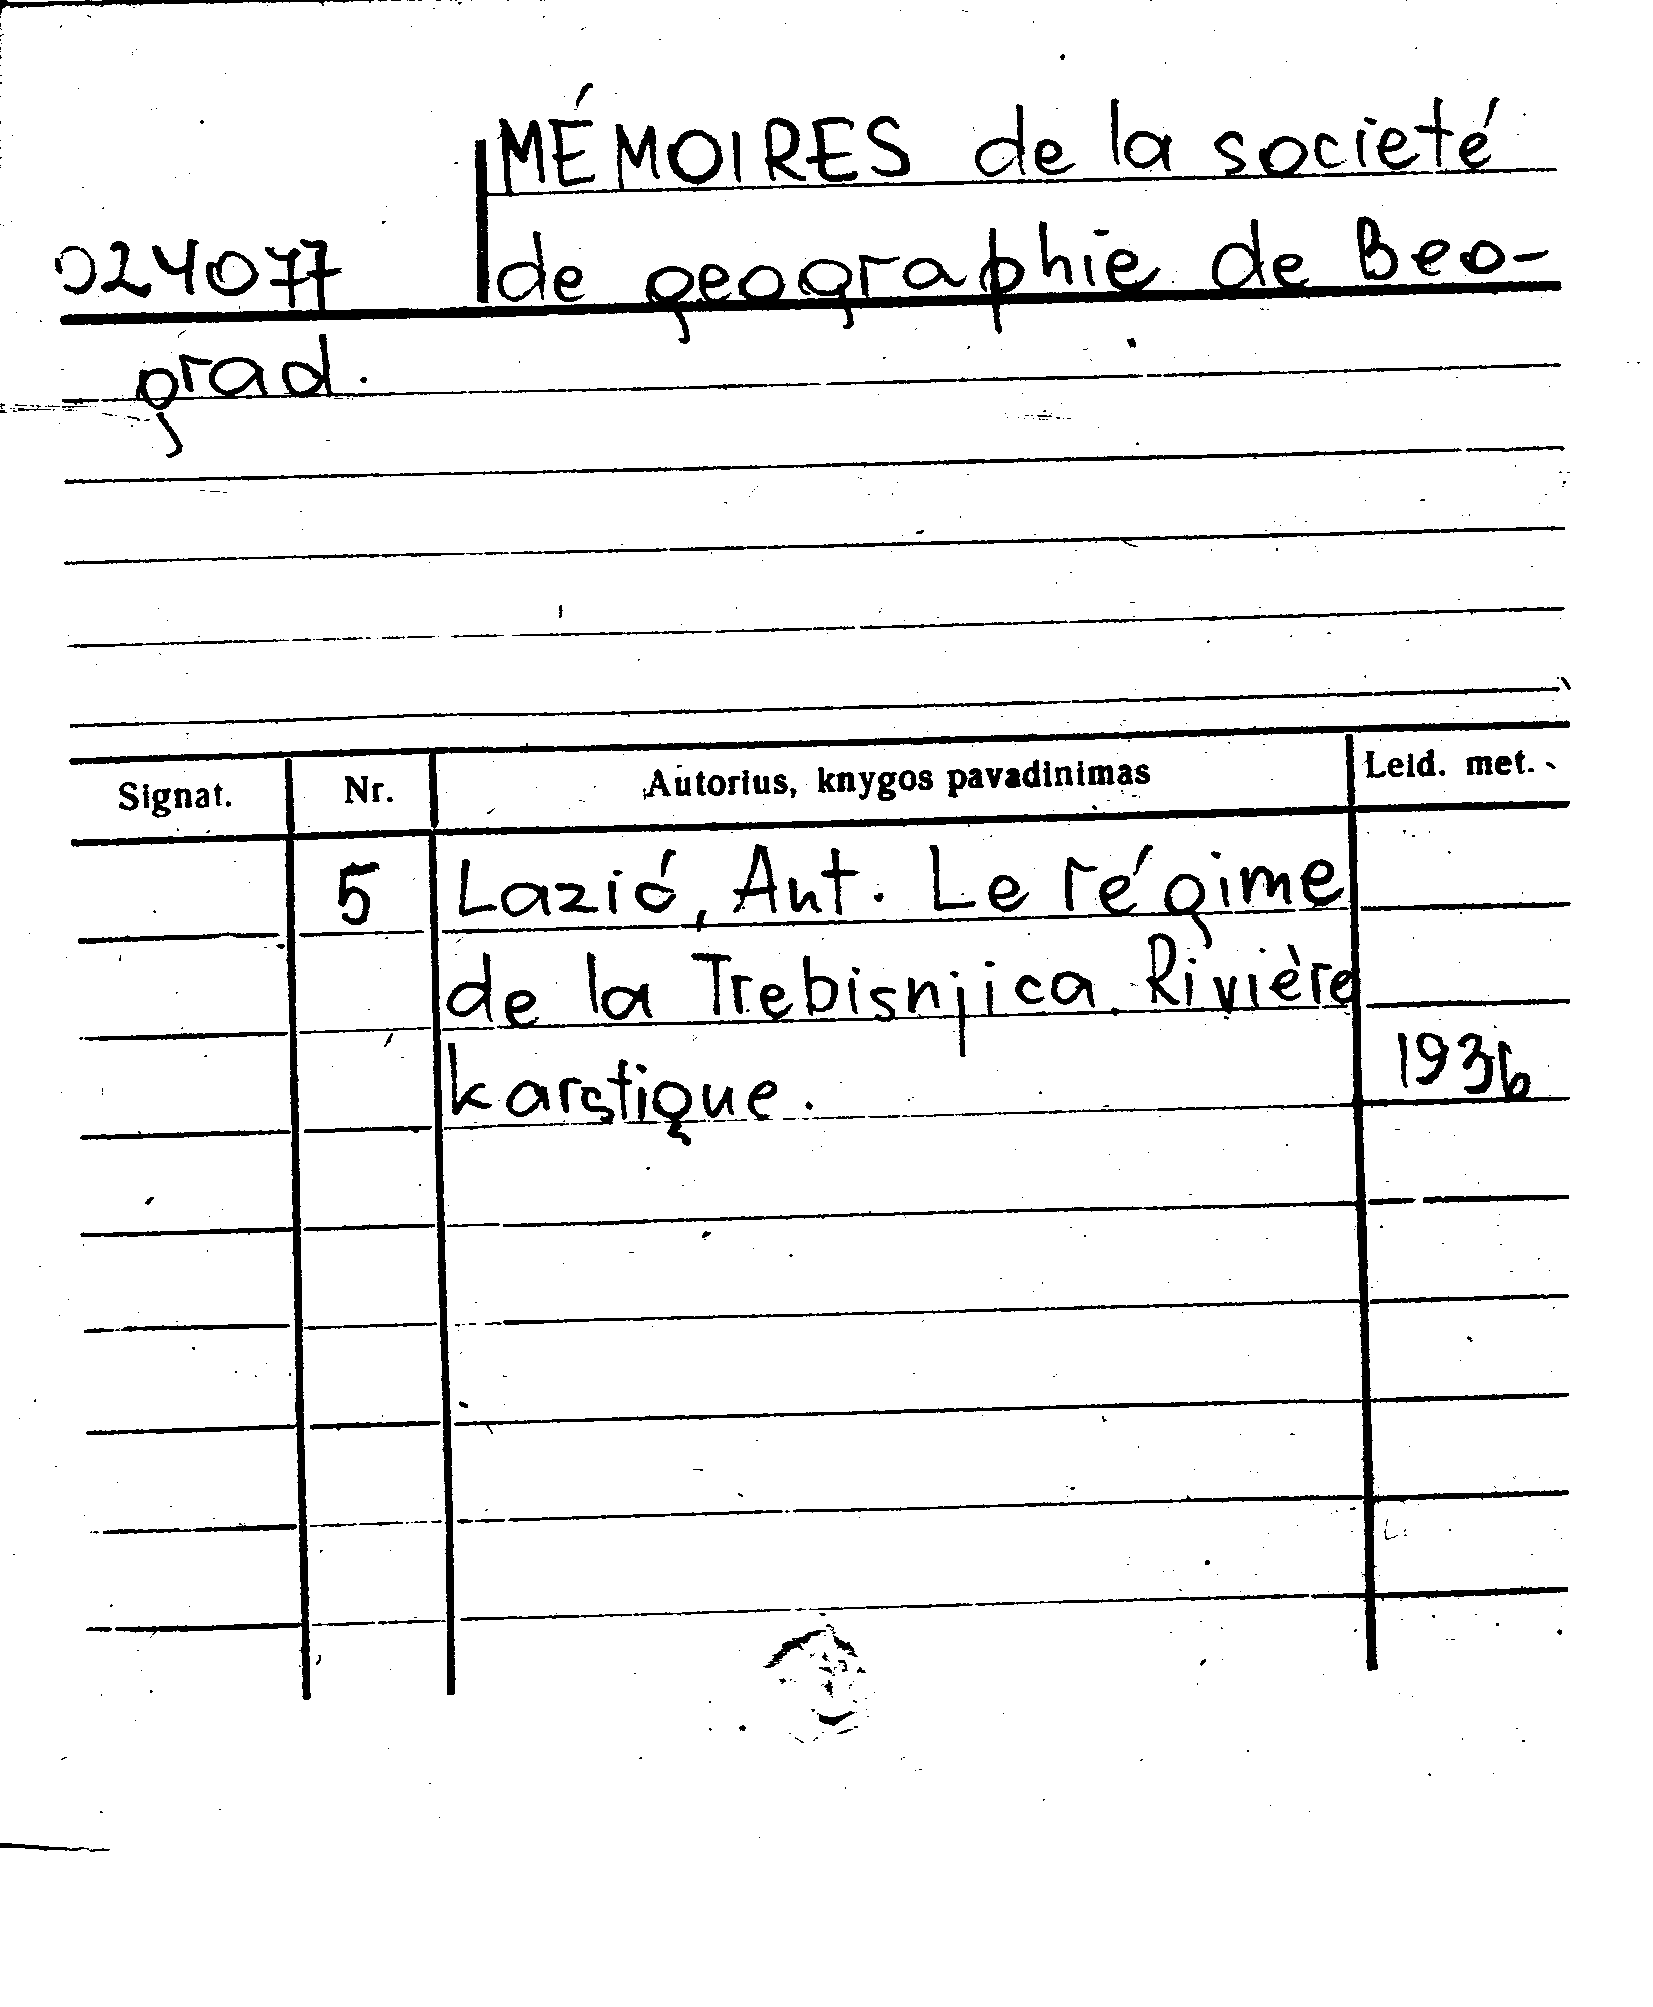 MÉMOIRES de la societé
024077 de geographie de Beo-
grad.
Signat. Nr. Autorius, knygos pavadinimas Leid. met.
5 Lazić, Ant. Le régime
de la Trebisnjica Rivière
karstique. 1936